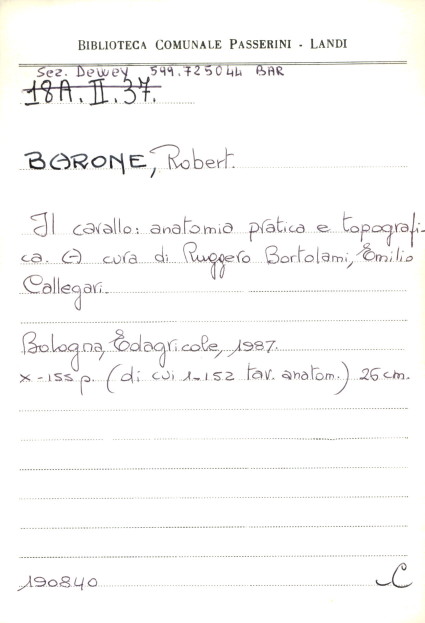 BIBLIOTECA COMUNALE PASSERINI - LANDI
Sez. Dewey 599.725044 BAR
18A.II.37.
BARONE, Robert.
Il cavallo: anatomia pratica e topografi-
ca. (-) cura di Ruggero Bortolami, Emilio
Callegari.
Bologna, Edagricole, 1987.
x-155 p. (di cui 1-152 tav. anatom.) 26 cm.
190840 C